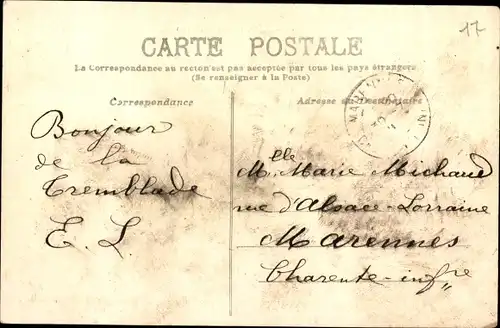 17
CARTE POSTALE
La Correspondance au recto n'est pas acceptée par tous les pays étrangers
(Se renseigner à la Poste)
Correspondance
Adresse du Destinataire
Bonjour
de la
Tremblade
E. L.
Melle Marie Michaud
rue d'Alsace-Lorraine
Marennes
Charente-infre